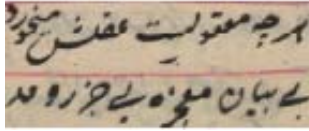 هرچه معقولست عقلش میخورد
بے بیان معجزه بے جزر و مد